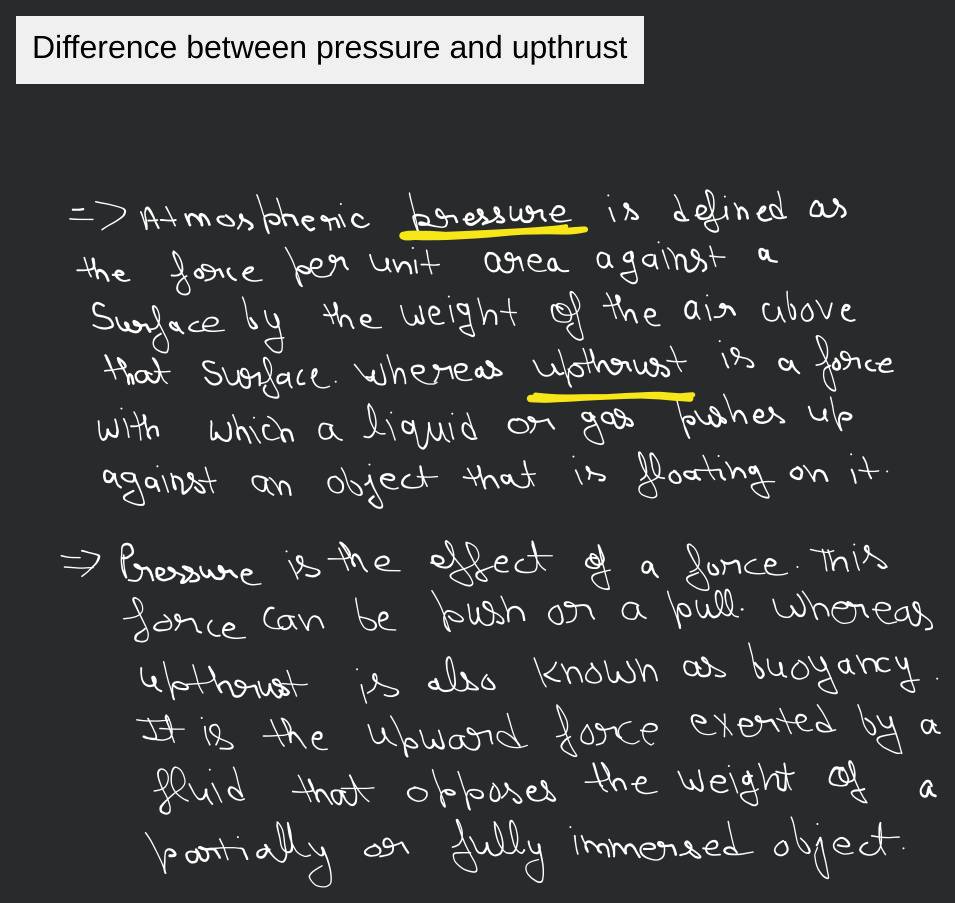 Difference between pressure and upthrust
=> Atmospheric pressure is defined as
the force per unit area against a
Surface by the weight of the air above
that surface. whereas upthrust is a force
with which a liquid or gas pushes up
against an object that is floating on it.
=> Pressure is the effect of a force. This
force can be push or a pull. Whereas
upthrust is also known as buoyancy.
It is the upward force exerted by a
fluid that opposes the weight of a
partially or fully immersed object.